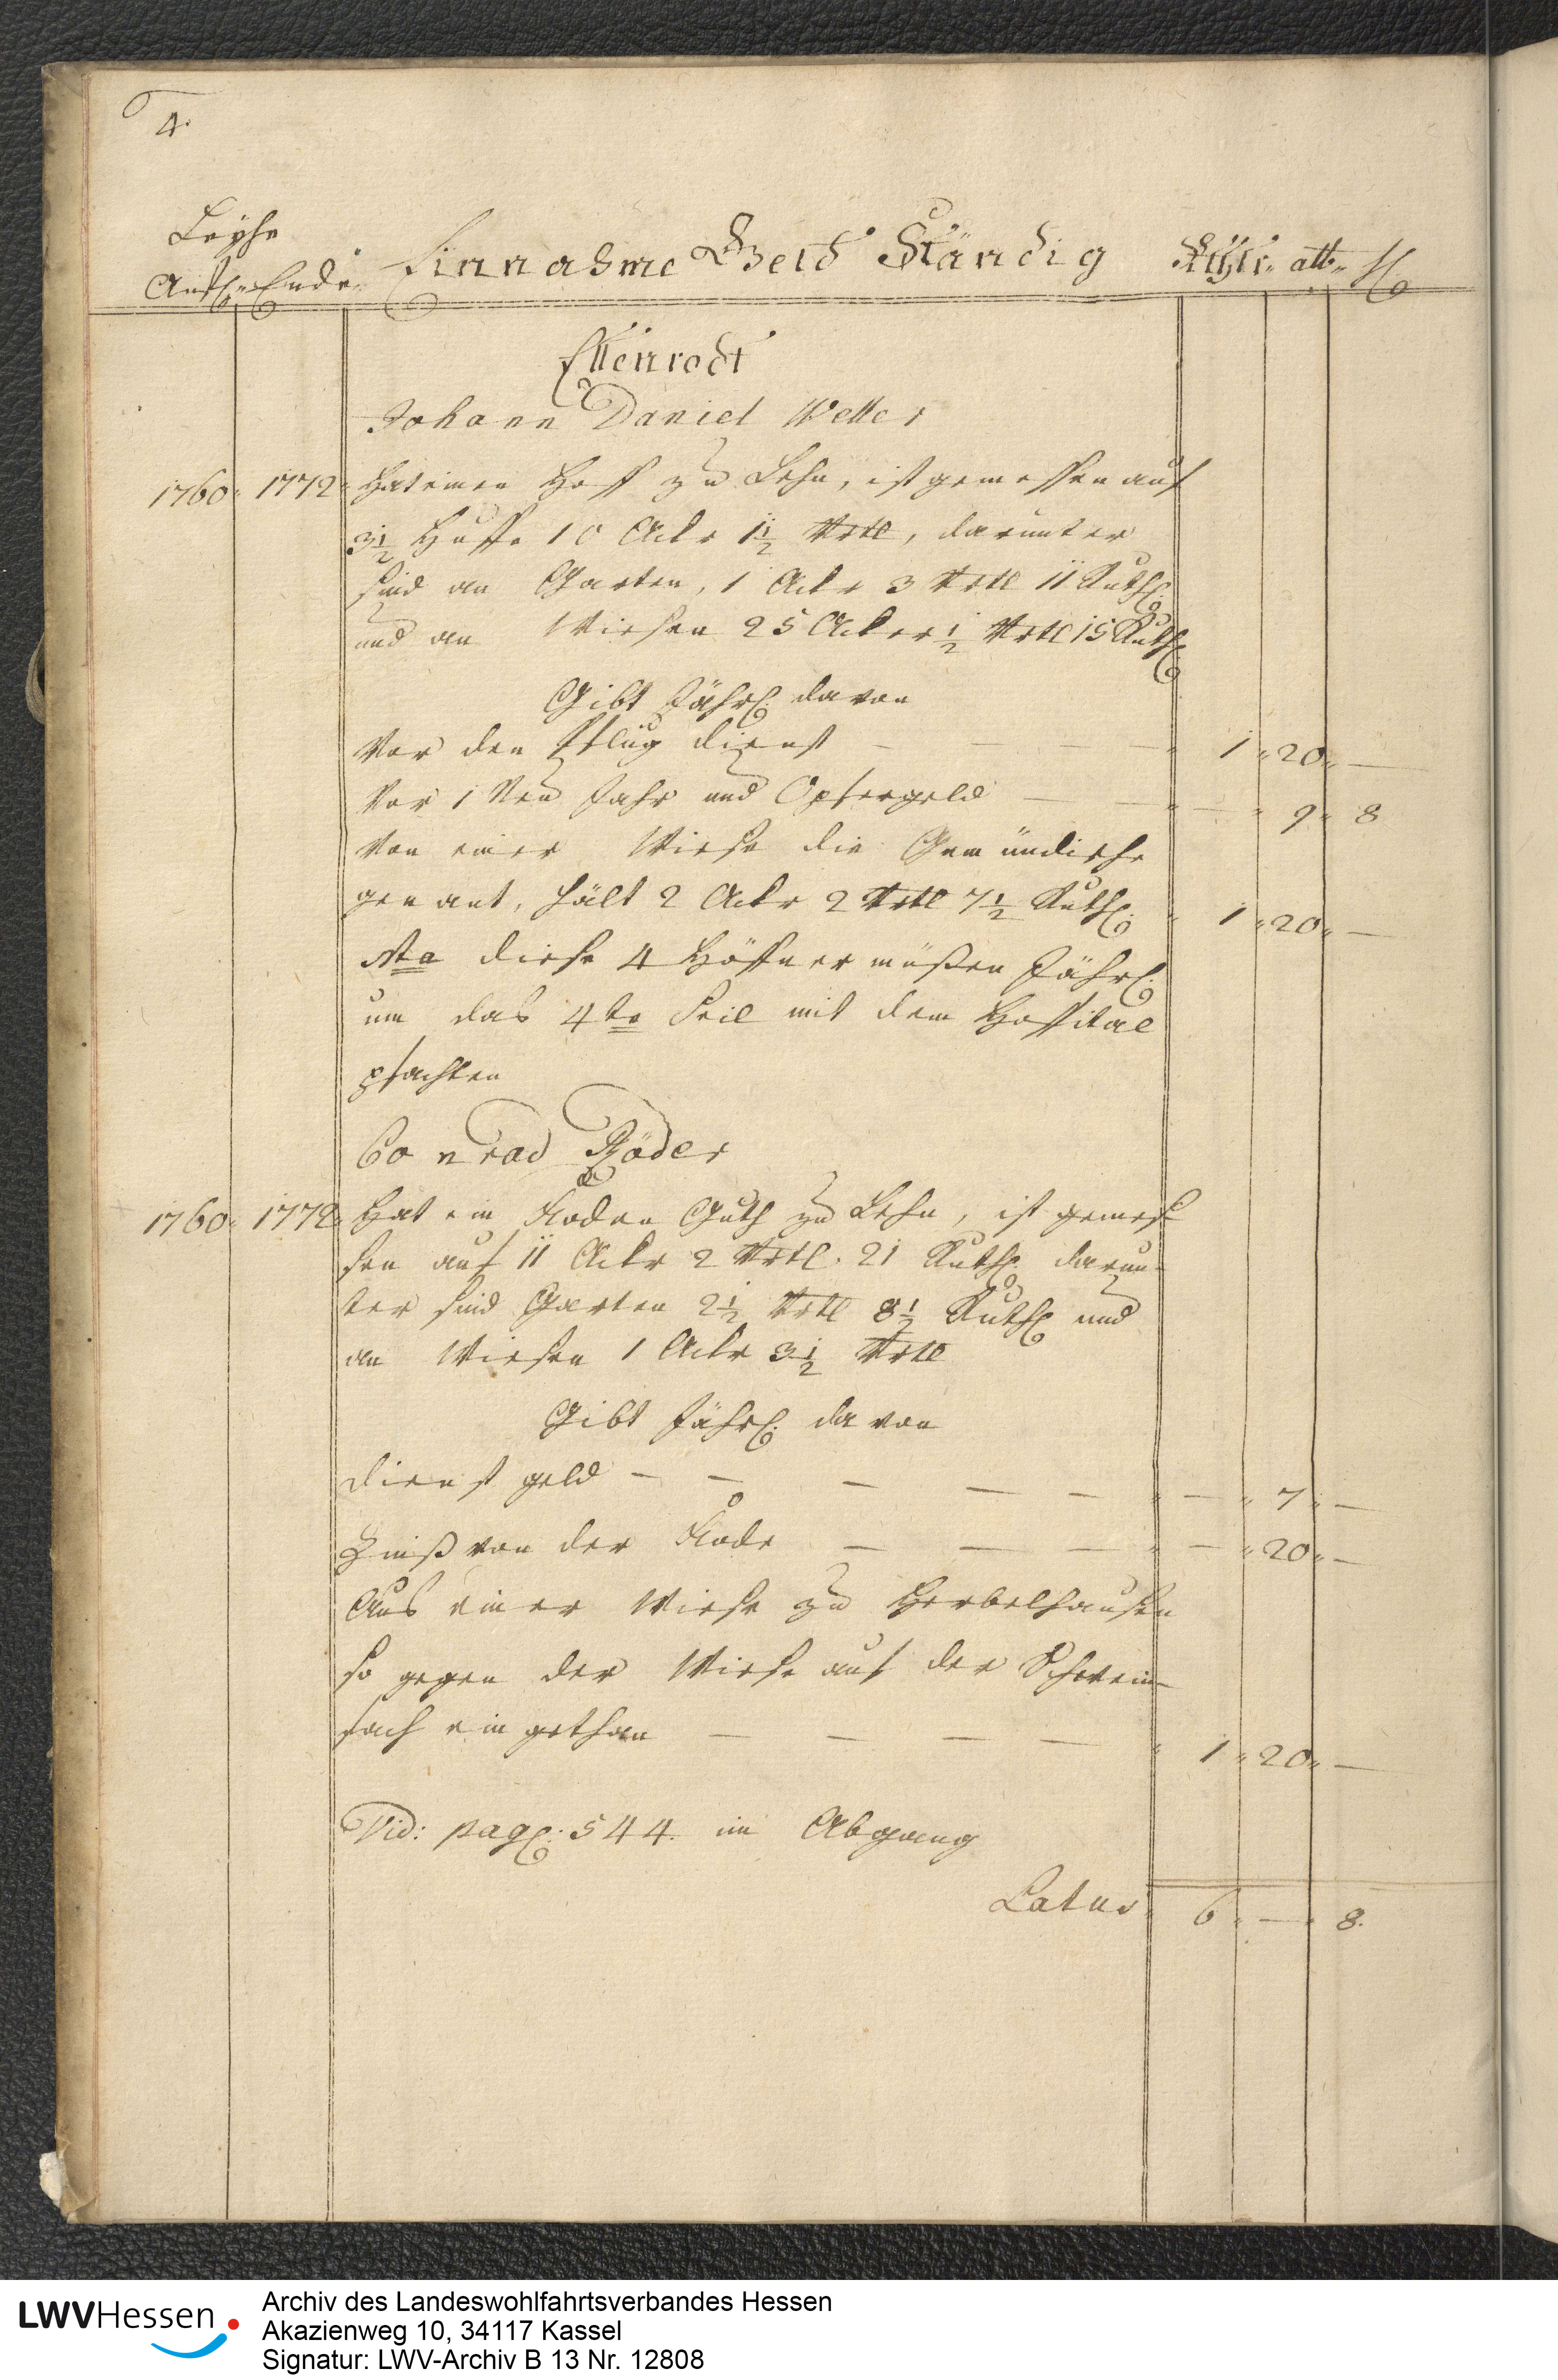 4.
Leyhe
Anfg: Ende. Einnahme Geld Ständig Rthlr. alb. hl
Ellenrodt
Johann Daniel Weller
1760. 1772. Hat einen Hoff zu Lehn, ist gemessen auf
3½ Huffe 10 Ackr 1½ Vrtl, darunter
sind an Garten, 1 Ackr 3 Vrtl 11 Ruth:
und an Wiesen 25 Acker ½ Vrtl 15 Ruth:
Gibt Jährl: davon
Vor den Pflug dienst — — — 1 „ 20 „ —
Vor 1 Neu Jahr und Opfergeld — — „ — „ 9 „ 8
Von einer Wiese die Gemündische
genant, hält 2 Ackr 2 Vrtl 7½ Ruth: „ 1 „ 20 „ —
Nta diese 4 Höffner müßen Jährl:
um das 4te Teil mit dem Hospital
pfachten
Conrad Röder
1760. 1772. Hat ein Roden Guth zu Lehn, ist gemes-
sen auf 11 Ackr 2 Vrtl. 21 Ruth: darun-
ter sind Garten 2½ Vrtl 8½ Ruth: und
an Wiesen 1 Ackr 3½ Vrtl
Gibt Jährl: davon
Dienst geld — — — — — „ — „ 7 „ —
Zinß von der Rode — — — „ — „ 20 „ —
Aus einer Wiese zu Herbelhausen
so gegen der Wiese auf der Schwein-
fach ein gethan — — — — „ 1 „ 20 „ —
Vid: pag: 544. im Abgang
Latus „ 6 „ — „ 8.
LWVHessen
Archiv des Landeswohlfahrtsverbandes Hessen
Akazienweg 10, 34117 Kassel
Signatur: LWV-Archiv B 13 Nr. 12808